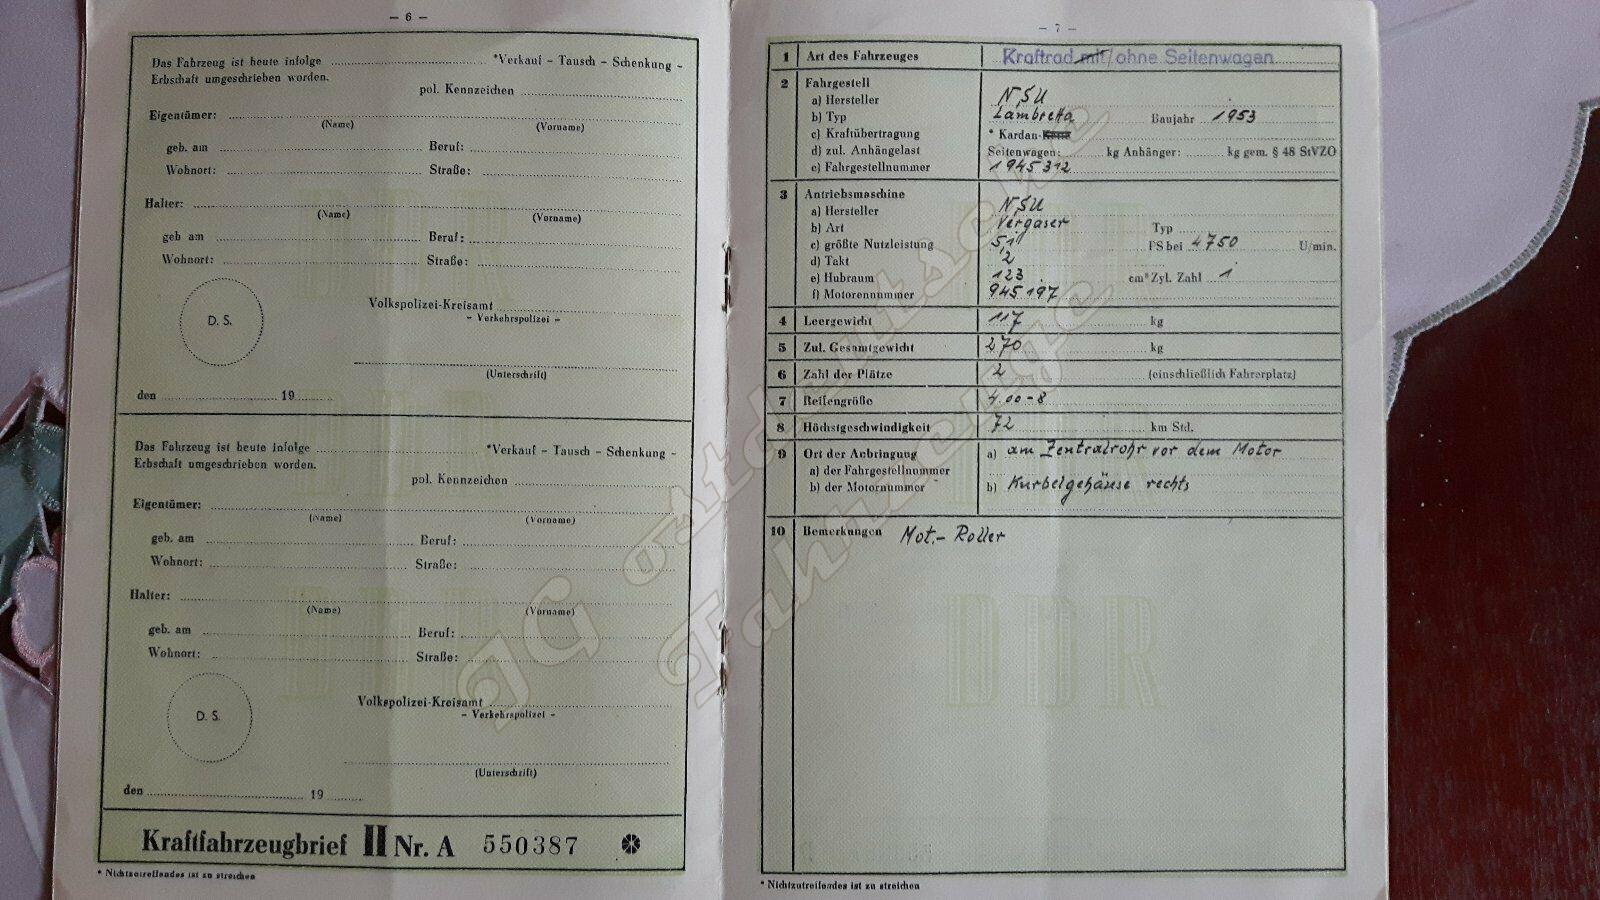 – 6 –
Das Fahrzeug ist heute infolge *Verkauf – Tausch – Schenkung –
Erbschaft umgeschrieben worden.
pol. Kennzeichen
Eigentümer:
(Name) (Vorname)
geb. am Beruf:
Wohnort: Straße:
Halter:
(Name) (Vorname)
geb am Beruf:
Wohnort: Straße:
D. S.
Volkspolizei-Kreisamt
– Verkehrspolizei –
(Unterschrift)
den 19
Das Fahrzeug ist heute infolge *Verkauf – Tausch – Schenkung –
Erbschaft umgeschrieben worden.
pol. Kennzeichen
Eigentümer:
(Name) (Vorname)
geb. am Beruf:
Wohnort: Straße:
Halter:
(Name) (Vorname)
geb. am Beruf:
Wohnort: Straße:
D. S.
Volkspolizei-Kreisamt
– Verkehrspolizei –
(Unterschrift)
den 19
Kraftfahrzeugbrief II Nr. A 550387
* Nichtzutreffendes ist zu streichen
– 7 –
1 Art des Fahrzeuges Kraftrad mit/ohne Seitenwagen
2 Fahrgestell
a) Hersteller NSU
b) Typ Lambretta Baujahr 1953
c) Kraftübertragung * Kardan-
d) zul. Anhängelast Seitenwagen: kg Anhänger: kg gem. § 48 StVZO
e) Fahrgestellnummer 1945312
3 Antriebsmaschine
a) Hersteller NSU
b) Art Vergaser Typ
c) größte Nutzleistung 5,1 PS bei 4750 U/min.
d) Takt 2
e) Hubraum 123 cm³ Zyl. Zahl 1
f) Motorennummer 945197
4 Leergewicht 117 kg
5 Zul. Gesamtgewicht 270 kg
6 Zahl der Plätze 2 (einschließlich Fahrerplatz)
7 Reifengröße 4.00-8
8 Höchstgeschwindigkeit 72 km Std.
9 Ort der Anbringung a) am Zentralrohr vor dem Motor
a) der Fahrgestellnummer
b) der Motornummer b) Kurbelgehäuse rechts
10 Bemerkungen Mot.- Roller
* Nichtzutreffendes ist zu streichen
DDR
DDR
DDR
DDR
DDR
DDR
IG ostdeutsche
Fahrzeuge